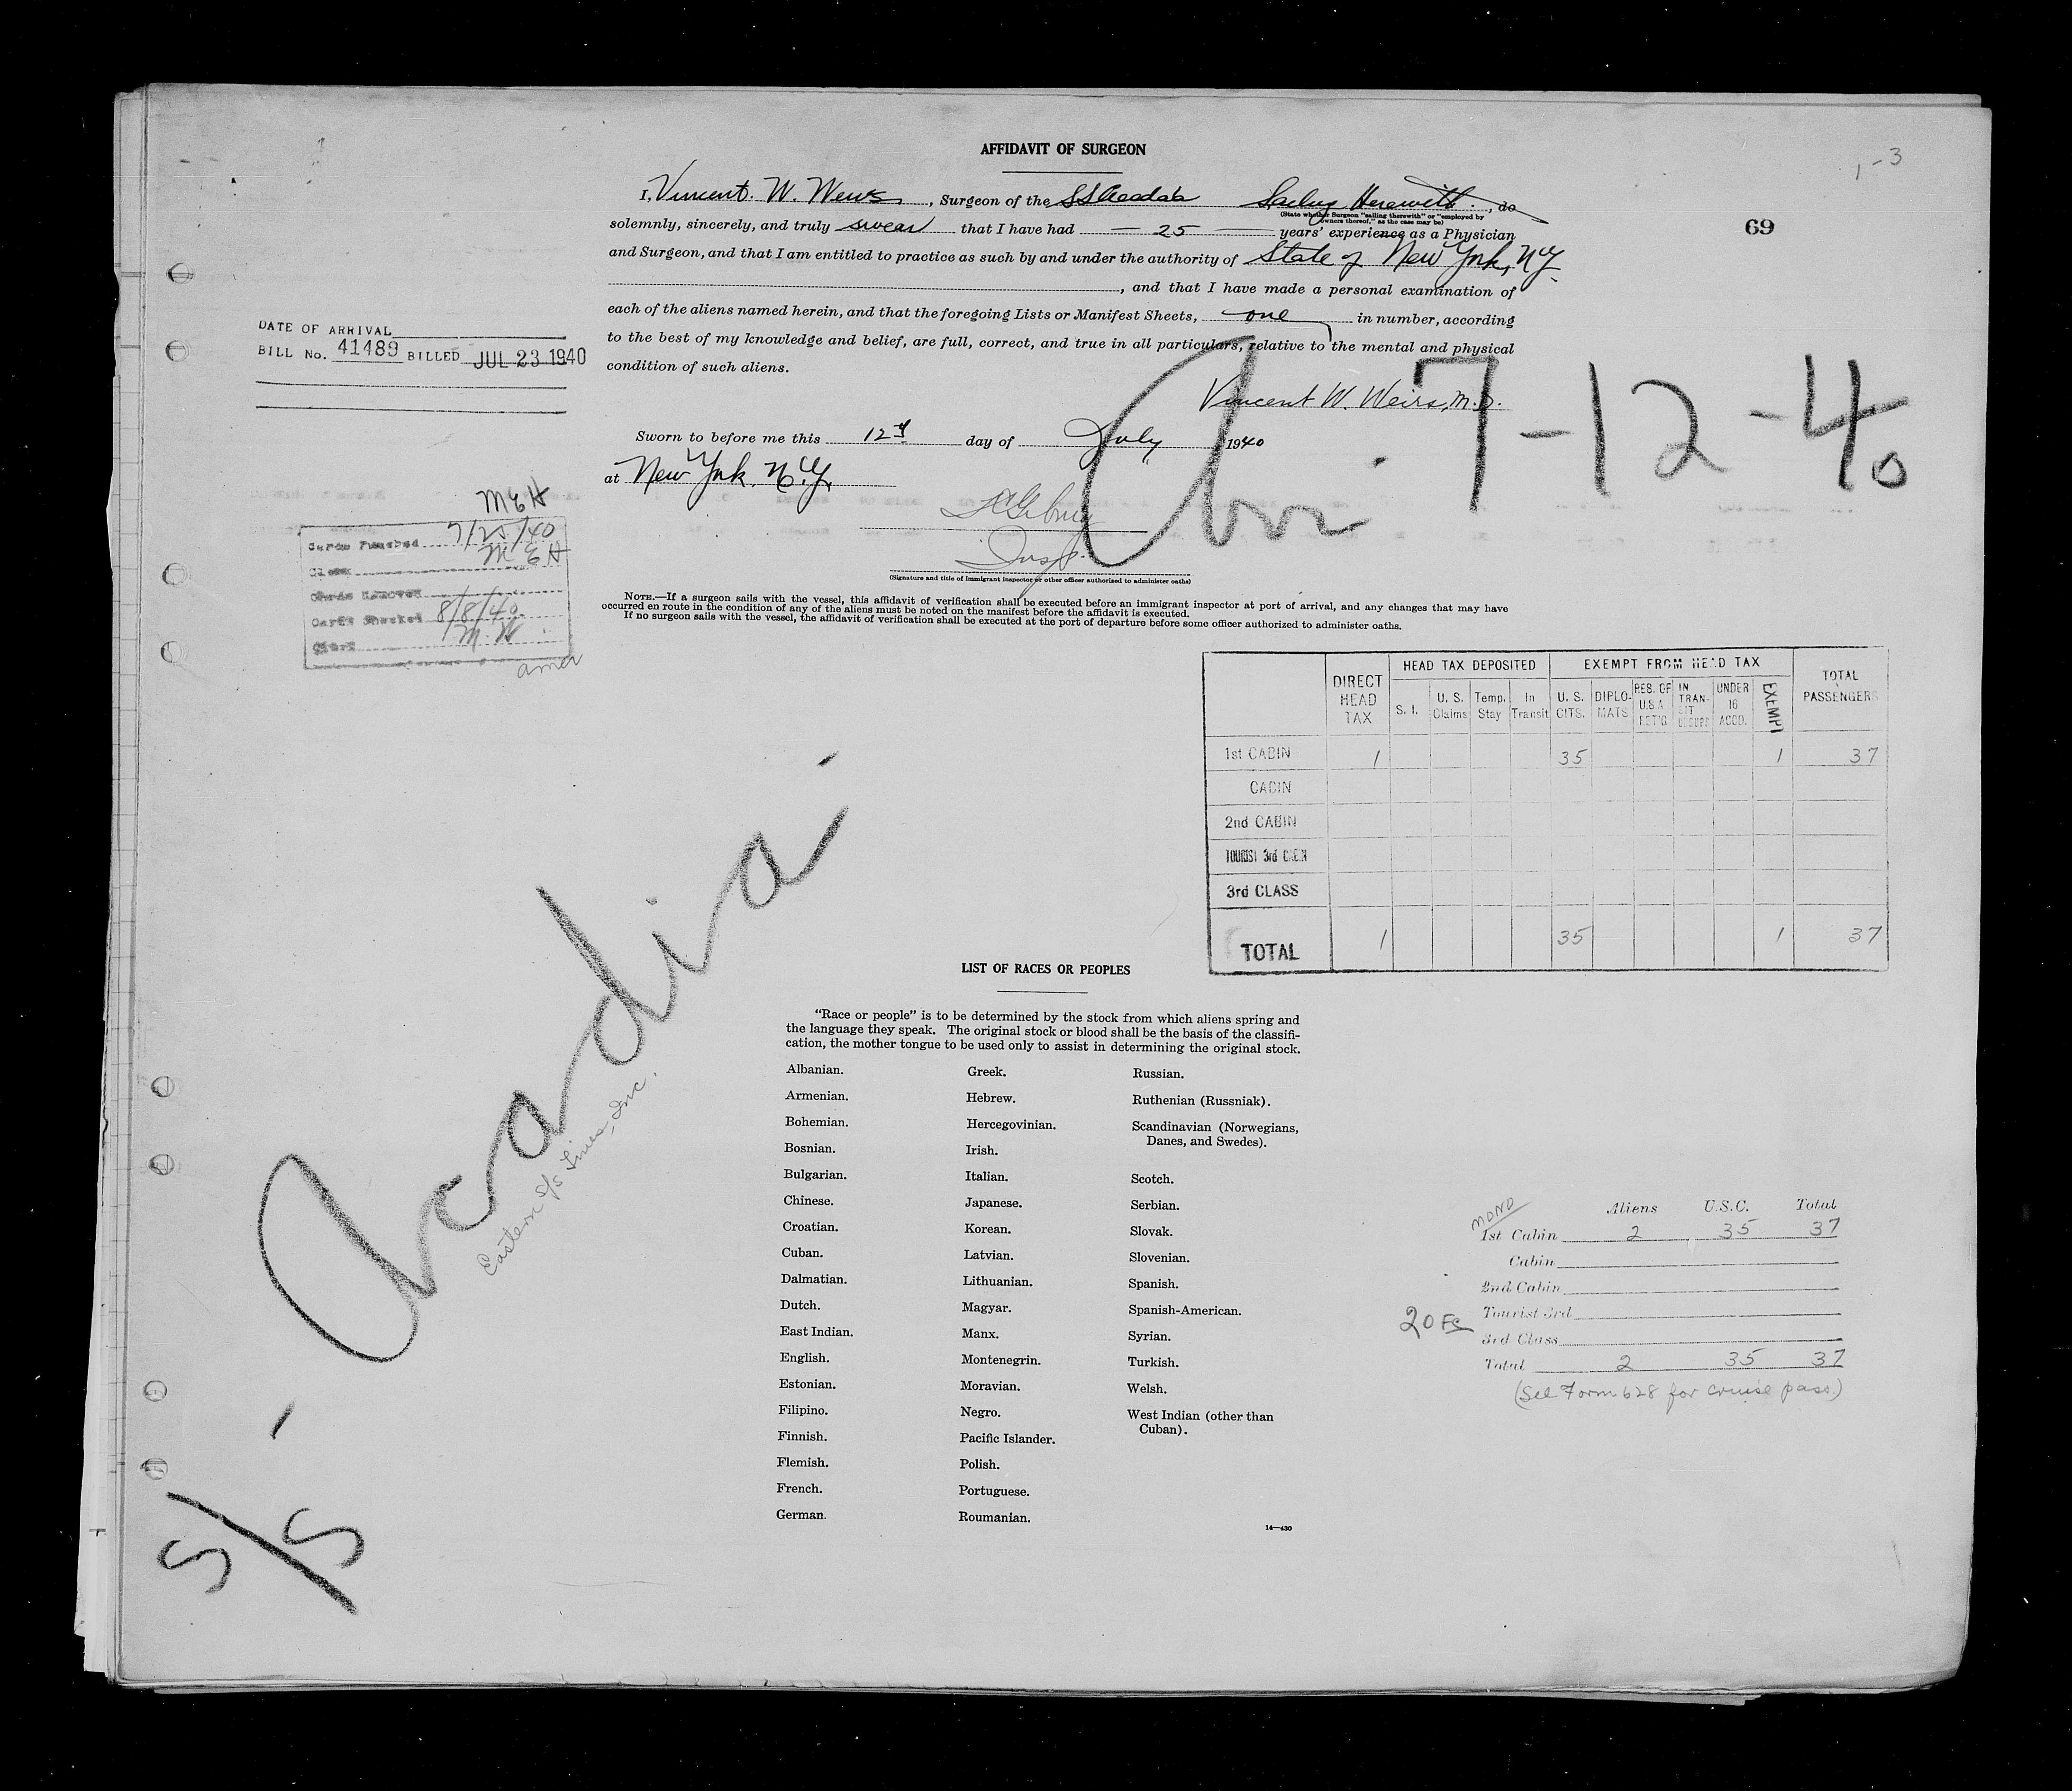 AFFIDAVIT OF SURGEON
1-3
69
I, Vincent. W. Weirs, Surgeon of the SS Acadia Sailing Herewith, do
(State whether Surgeon "sailing therewith" or "employed by
owners thereof," as the case may be)
solemnly, sincerely, and truly swear that I have had — 25 — years' experience as a Physician
and Surgeon, and that I am entitled to practice as such by and under the authority of State of New York, NY
, and that I have made a personal examination of
each of the aliens named herein, and that the foregoing Lists or Manifest Sheets, one in number, according
to the best of my knowledge and belief, are full, correct, and true in all particulars, relative to the mental and physical
condition of such aliens.
Vincent W. Weirs, M.D.
DATE OF ARRIVAL
BILL No. 41489 BILLED JUL 23 1940
Arr. 7-12-40
Sworn to before me this 12th day of July 1940
at New York. N.Y.
Insp.
(Signature and title of immigrant inspector or other officer authorized to administer oaths)
MEH
Cards Punched 7/25/40
Clerk MEH
Cards Checked 8/8/40
Clerk M.W
NOTE.—If a surgeon sails with the vessel, this affidavit of verification shall be executed before an immigrant inspector at port of arrival, and any changes that may have
occurred en route in the condition of any of the aliens must be noted on the manifest before the affidavit is executed.
If no surgeon sails with the vessel, the affidavit of verification shall be executed at the port of departure before some officer authorized to administer oaths.
DIRECT HEAD TAX
HEAD TAX DEPOSITED
S. I. U. S. Claims Temp. Stay In Transit
EXEMPT FROM HEAD TAX
U. S. CITS. DIPLO-MATS RES. OF U.S.A RET'G IN TRAN-SIT UNDER 16 ACCD. EXEMPT
TOTAL PASSENGERS
1st CABIN 1 35 1 37
CABIN
2nd CABIN
TOURIST 3rd CABIN
3rd CLASS
TOTAL 1 35 1 37
S/S - Acadia -
Eastern S/S Lines, Inc.
LIST OF RACES OR PEOPLES
"Race or people" is to be determined by the stock from which aliens spring and
the language they speak. The original stock or blood shall be the basis of the classifi-
cation, the mother tongue to be used only to assist in determining the original stock.
Albanian.
Armenian.
Bohemian.
Bosnian.
Bulgarian.
Chinese.
Croatian.
Cuban.
Dalmatian.
Dutch.
East Indian.
English.
Estonian.
Filipino.
Finnish.
Flemish.
French.
German.
Greek.
Hebrew.
Hercegovinian.
Irish.
Italian.
Japanese.
Korean.
Latvian.
Lithuanian.
Magyar.
Manx.
Montenegrin.
Moravian.
Negro.
Pacific Islander.
Polish.
Portuguese.
Roumanian.
Russian.
Ruthenian (Russniak).
Scandinavian (Norwegians,
Danes, and Swedes).
Scotch.
Serbian.
Slovak.
Slovenian.
Spanish.
Spanish-American.
Syrian.
Turkish.
Welsh.
West Indian (other than
Cuban).
14—430
MONO
Aliens U.S.C. Total
1st Cabin 2 35 37
Cabin
2nd Cabin
Tourist 3rd
3rd Class
Total 2 35 37
(See Form 628 for cruise pass.)